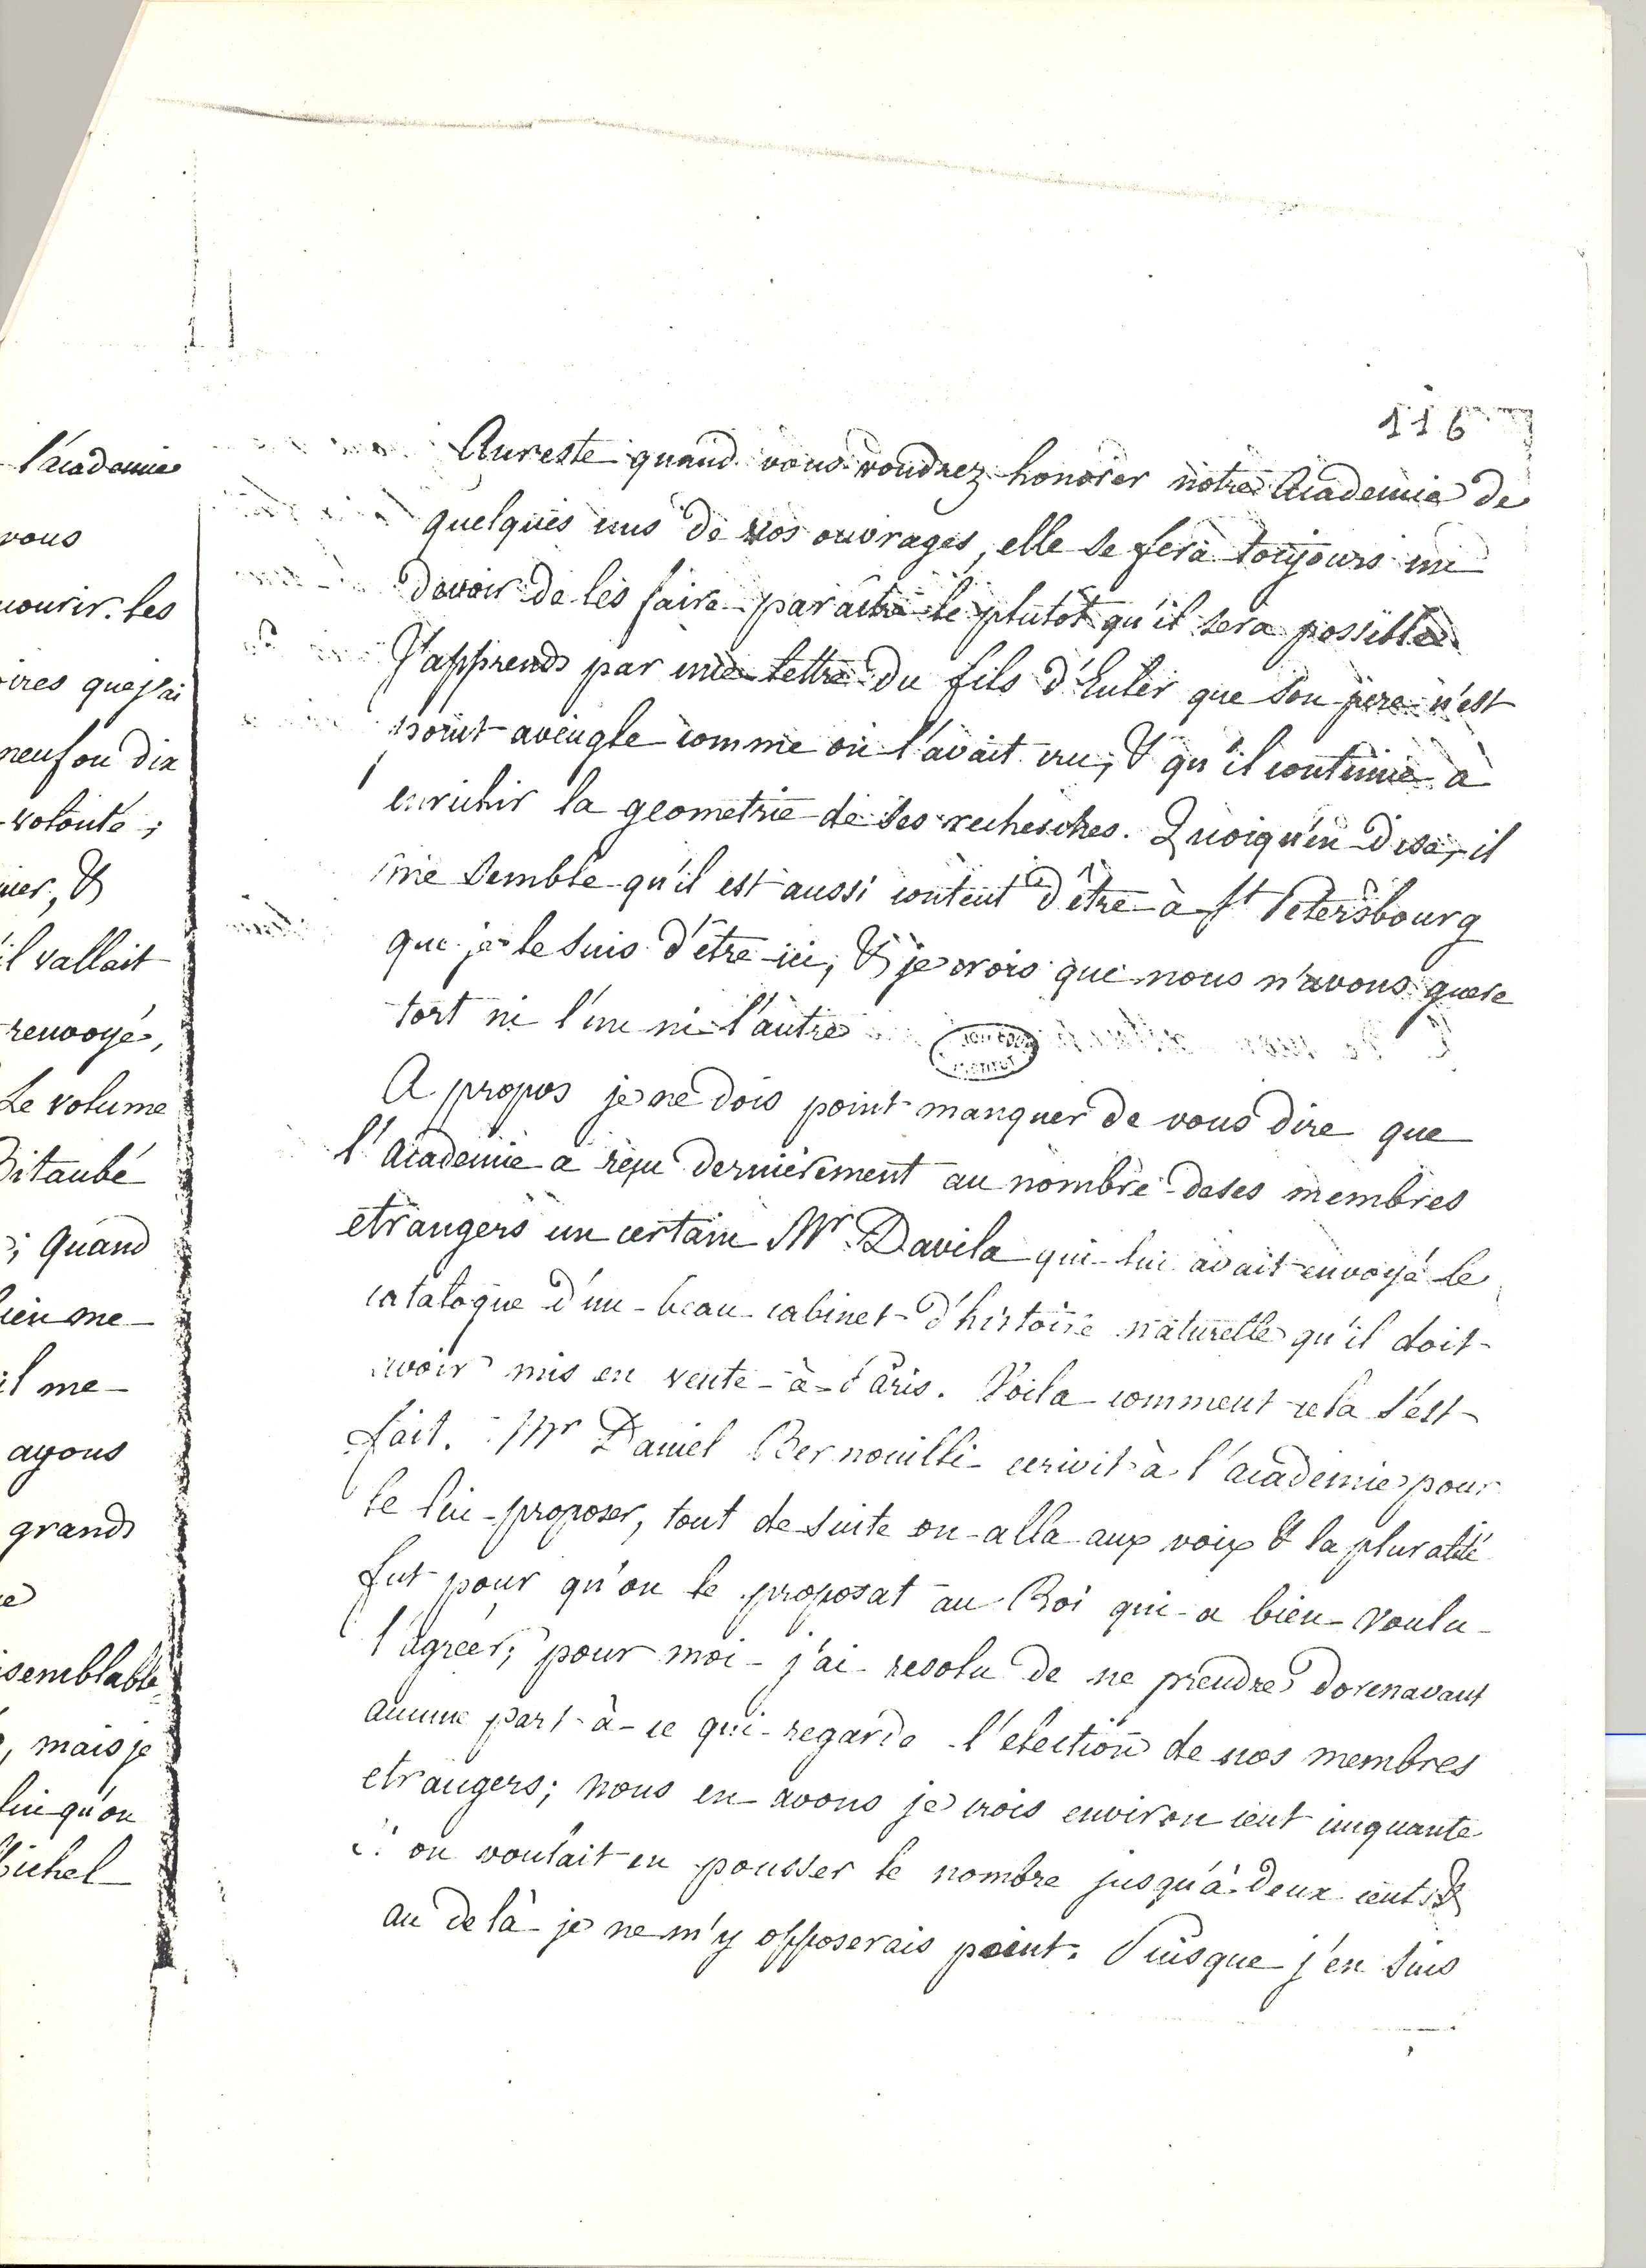 116
Aureste quand vous voudrez honorer notre Academie de
quelques uns de vos ouvrages, elle se fera toujours un
devoir de les faire paraitre le plutôt qu'il sera possible.
J'apprends par une lettre du fils d'Euler que son pere n'est
point aveugle comme on l'avait cru, & qu'il continue à
enrichir la geometrie de ses recherches. Quoiqu'en dise, il
me semble qu'il est aussi content d'être à St Petersbourg
que je le suis d'être ici, & je crois que nous n'avons guere
tort ni l'un ni l'autre
A propos je ne dois point manquer de vous dire que
l'Academie a reçu dernièrement au nombre de ses membres
etrangers un certain Mr Davila qui lui avait envoyé le
catalogue d'un beau cabinet d'histoire naturelle qu'il doit
avoir mis en vente à Paris. Voila comment cela s'est
fait. Mr Daniel Bernouilli ecrivit à l'academie pour
le lui proposer, tout de suite on alla aux voix & la pluralité
fut pour qu'on le proposat au Roi qui a bien voulu
l'agréer; pour moi j'ai resolu de ne prendre dorenavant
aucune part à ce qui regarde l'election de nos membres
etrangers; nous en avons je crois environ cent cinquante
Si on voulait en pousser le nombre jusqu'à deux cents &
au delà je ne m'y opposerais point. Puisque j'en suis
l'academie
vous
courir. les
oires que j'ai
neuf ou dix
volonté;
nier, &
'il vallait
renvoyé,
Le volume
Bitaubé
; Quand
bien me
il me
ayons
grands
semblable
, mais je
lui qu'on
Michel